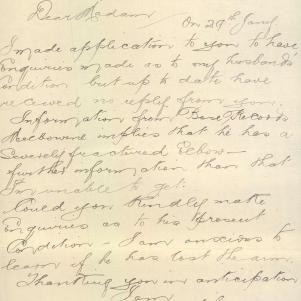 Dear Madam
On 29th Jany
I made application to you to have
Enquiries made as to my husband's
Condition but up to date have
received no reply from you.
Information from Base Records
Melbourne implies that he has a
Severely fractured Elbow—
further information than that
I'm unable to get.
Could you kindly make
Enquiries as to his present
Condition - I am anxious to
learn if he has lost the arm.
Thanking you in anticipation
I am